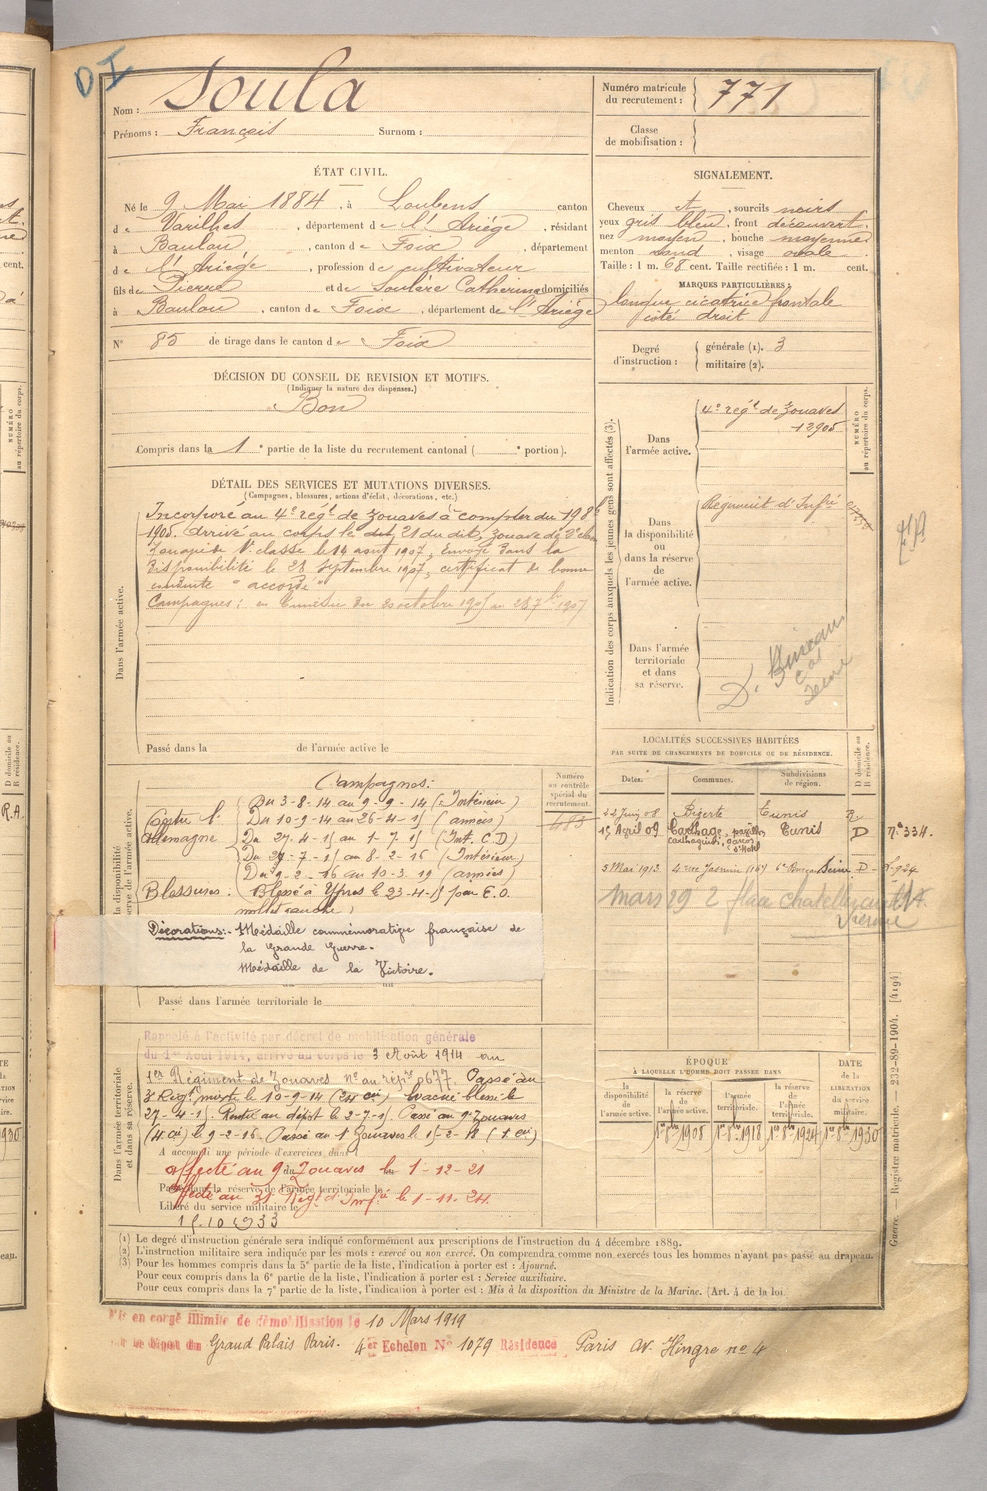 DI
Nom : Soula
Prénoms : François Surnom :
Numéro matricule du recrutement : 771
Classe de mobilisation :
ÉTAT CIVIL.
Né le 9 Mai 1884, à Loubens canton
de Varilhes, département de l'Ariège, résidant
à Baulou, canton de Foix, département
de l'Ariège, profession de cultivateur
fils de Pierre et de Soulère Catherine domiciliés
à Baulou, canton de Foix, département de l'Ariège
N° 85 de tirage dans le canton de Foix
SIGNALEMENT.
Cheveux et, sourcils noirs
yeux gris bleu, front découvert,
nez moyen, bouche moyenne
menton rond, visage ovale.
Taille : 1 m. 68 cent. Taille rectifiée : 1 m. cent.
MARQUES PARTICULIÈRES :
longue cicatrice frontale
côté droit
Degré d'instruction : générale (1). 3
militaire (2).
DÉCISION DU CONSEIL DE REVISION ET MOTIFS.
(Indiquer la nature des dispenses.)
Bon
Compris dans la 1e partie de la liste du recrutement cantonal ( e portion).
DÉTAIL DES SERVICES ET MUTATIONS DIVERSES.
(Campagnes, blessures, actions d'éclat, décorations, etc.)
Dans l'armée active.
Incorporé au 4e régt de Zouaves à compter du
1905. Arrivé au corps le dit, Zouave de 2e classe
le 14 aout 1907, Envoyé dans la
disponibilité le 28 Septembre 1907, certificat de bonne
conduite "accordé"
Campagnes : en Tunisie du 20 octobre 1905 au 28 7bre 1907
Passé dans la de l'armée active le
Indication des corps auxquels les jeunes gens sont affectés (3).
NUMÉRO au répertoire du corps.
Dans l'armée active.
4e régt de Zouaves
12905
Dans la disponibilité ou dans la réserve de l'armée active.
Régiment d'Infrie
Dans l'armée territoriale et dans sa réserve.
LOCALITÉS SUCCESSIVES HABITÉES
PAR SUITE DE CHANGEMENTS DE DOMICILE OU DE RÉSIDENCE.
Dates. Communes. Subdivisions de région. D domicile ou R résidence.
22 Juin 08 Bizerte Tunis R
15 Avril 09 Carthage, Tunis D n° 334.
5 Mai 1913 4 rue Jasmin (16e) 6e Bureau Seine D
mars 29 2 place
Numéro au contrôle spécial du recrutement.
483
Campagnes :
Contre l'Allemagne
Du 3-8-14 au 9-9-14 (Intérieur)
Du 10-9-14 au 26-4-15 (armées)
Du 27-4-15 au 1-7-15 (Int. C.D)
Du 2-7-15 au 8-2-16 (Intérieur)
Du 9-2-16 au 10-3-19 (armées)
Blessures : Blessé à Ypres le 23-4-15 par E.O.
mollet gauche
Décorations :- Médaille commémorative française de
la Grande Guerre.
Médaille de la Victoire.
Passé dans l'armée territoriale le
Dans l'armée territoriale et dans sa réserve.
Rappelé à l'activité par décret de mobilisation générale
du 1er Aout 1914, arrivé au corps le 3 Août 1914 au
1er Régiment de Zouaves n° au répre 8677. Passé au
3e Régt mixte le 10-9-14 (24e cie) Evacué blessé le
27-4-15. Rentré au dépôt le 2-7-15. Passé au 1er Zouaves
(4e cie) le 9-2-16. Passé au 1er Zouaves le 15-2-18 (5e cie)
A accompli une période d'exercices dans
affecté au 9e du Zouaves le 1-12-21
Passé dans la réserve de l'armée territoriale le
affecté au 31e Régt d'Infrie le 1-11-24
Libéré du service militaire le
15.10.1933
ÉPOQUE
À LAQUELLE L'HOMME DOIT PASSER DANS
la disponibilité de l'armée active.
la réserve de l'armée active. 1er 8bre 1908
l'armée territoriale. 1er 8bre 1918
la réserve de l'armée territoriale. 1er 8bre 1924
DATE de la LIBÉRATION du service militaire. 1er 8bre 1930
(1) Le degré d'instruction générale sera indiqué conformément aux prescriptions de l'instruction du 4 décembre 1889.
(2) L'instruction militaire sera indiquée par les mots : exercé ou non exercé. On comprendra comme non exercés tous les hommes n'ayant pas passé au drapeau.
(3) Pour les hommes compris dans la 5e partie de la liste, l'indication à porter est : Ajourné.
Pour ceux compris dans la 6e partie de la liste, l'indication à porter est : Service auxiliaire.
Pour ceux compris dans la 7e partie de la liste, l'indication à porter est : Mis à la disposition du Ministre de la Marine. (Art. 4 de la loi.
Guerre. — Registre matricule. — 232-89-1904. [4194]
Mis en congé illimité de démobilisation le 10 Mars 1919
par le Dépôt du Grand Palais Paris. 4er Echelon N° 1079 Résidence Paris av. Hingre no 4